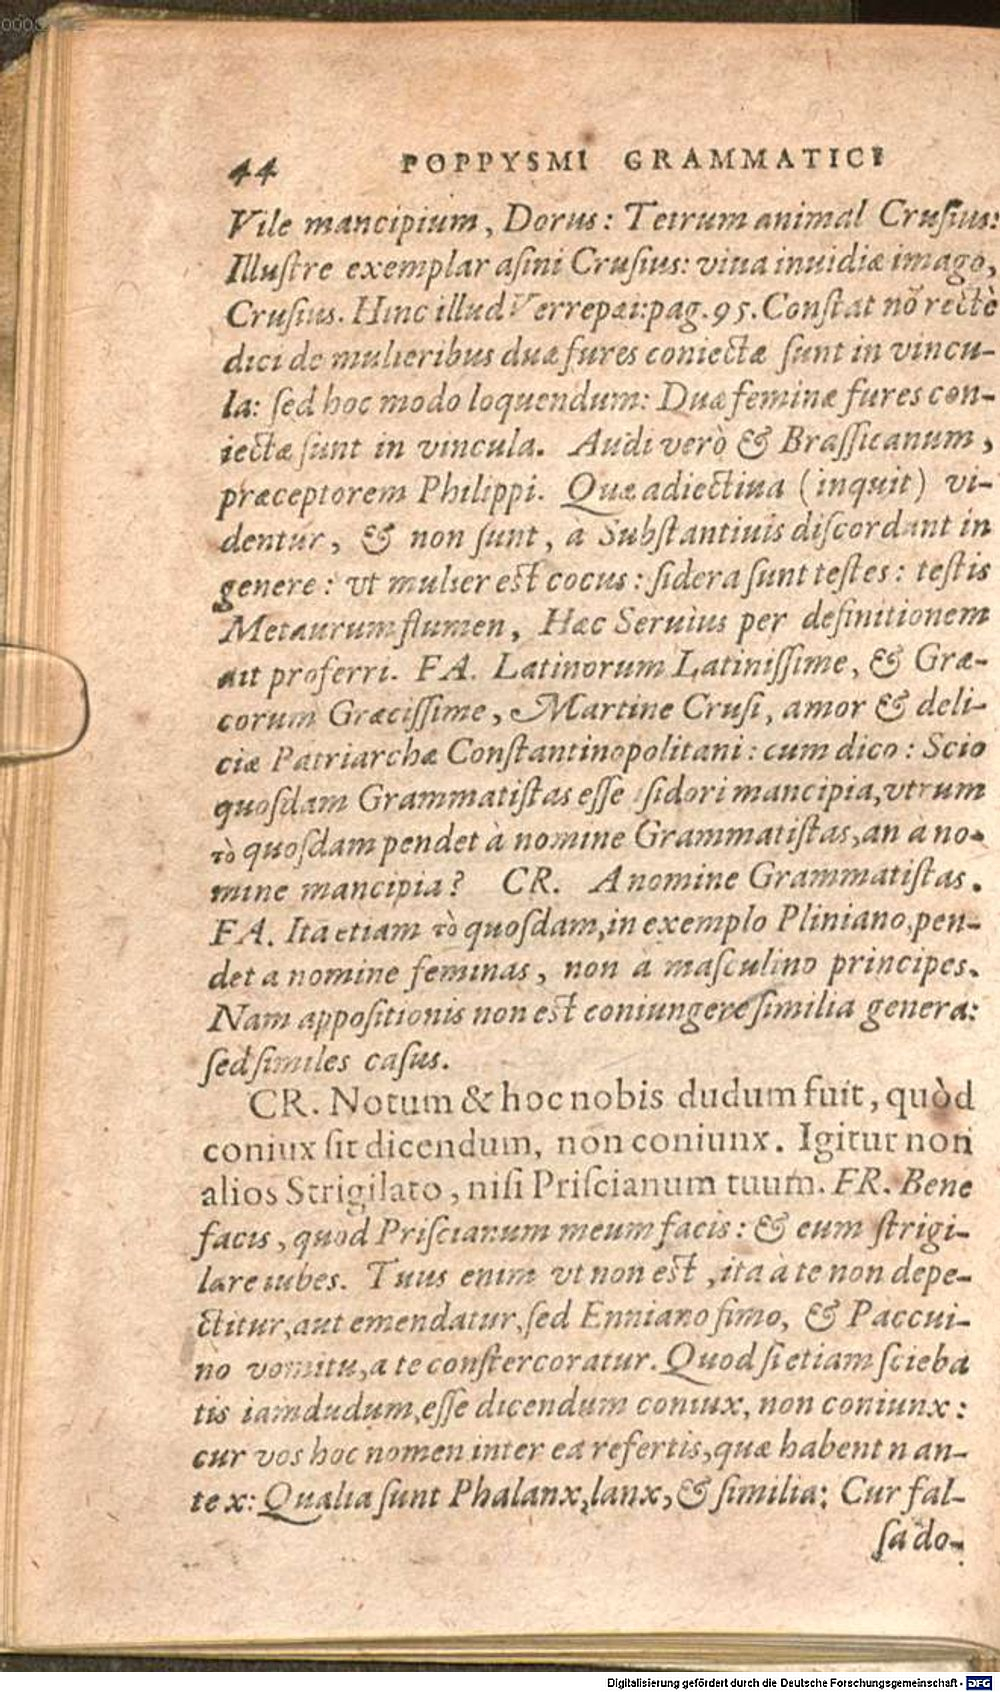 44 POPPYSMI GRAMMATICI
Vile mancipium, Dorus: Tetrum animal Crusius:
Illustre exemplar asini Crusius: viua inuidiæ imago,
Crusius. Hinc illud Verrepæi: pag. 95. Constat nõ rectè
dici de mulieribus duæ fures coniectæ sunt in vincu-
la: sed hoc modo loquendum: Duæ feminæ fures con-
iectæ sunt in vincula. Audi verò & Brassicanum,
præceptorem Philippi. Quæ adiectiua (inquit) vi-
dentur, & non sunt, a Substantiuis discordant in
genere: vt mulier est cocus: sidera sunt testes: testis
Metaurum flumen, Hæc Seruius per definitionem
ait proferri. FA. Latinorum Latinissime, & Græ-
corum Græcissime, Martine Crusi, amor & deli-
ciæ Patriarchæ Constantinopolitani: cum dico: Scio
quosdam Grammatistas esse Isidori mancipia, vtrum
τὸ quosdam pendet à nomine Grammatistas, an à no-
mine mancipia? CR. A nomine Grammatistas.
FA. Ita etiam τὸ quosdam, in exemplo Pliniano, pen-
det a nomine feminas, non a masculino principes.
Nam appositionis non est coniungere similia genera:
sed similes casus.
CR. Notum & hoc nobis dudum fuit, quòd
coniux sit dicendum, non coniunx. Igitur non
alios Strigilato, nisi Priscianum tuum. FR. Bene
facis, quod Priscianum meum facis: & eum strigi-
lare iubes. Tuus enim vt non est, ita à te non depe-
ctitur, aut emendatur, sed Enniano fimo, & Paccui-
no vomitu, a te constercoratur. Quod si etiam scieba
tis iamdudum, esse dicendum coniux, non coniunx:
cur vos hoc nomen inter ea refertis, quæ habent n an-
te x: Qualia sunt Phalanx, lanx, & similia: Cur fal-
sa do-
Digitalisierung gefördert durch die Deutsche Forschungsgemeinschaft - DFG